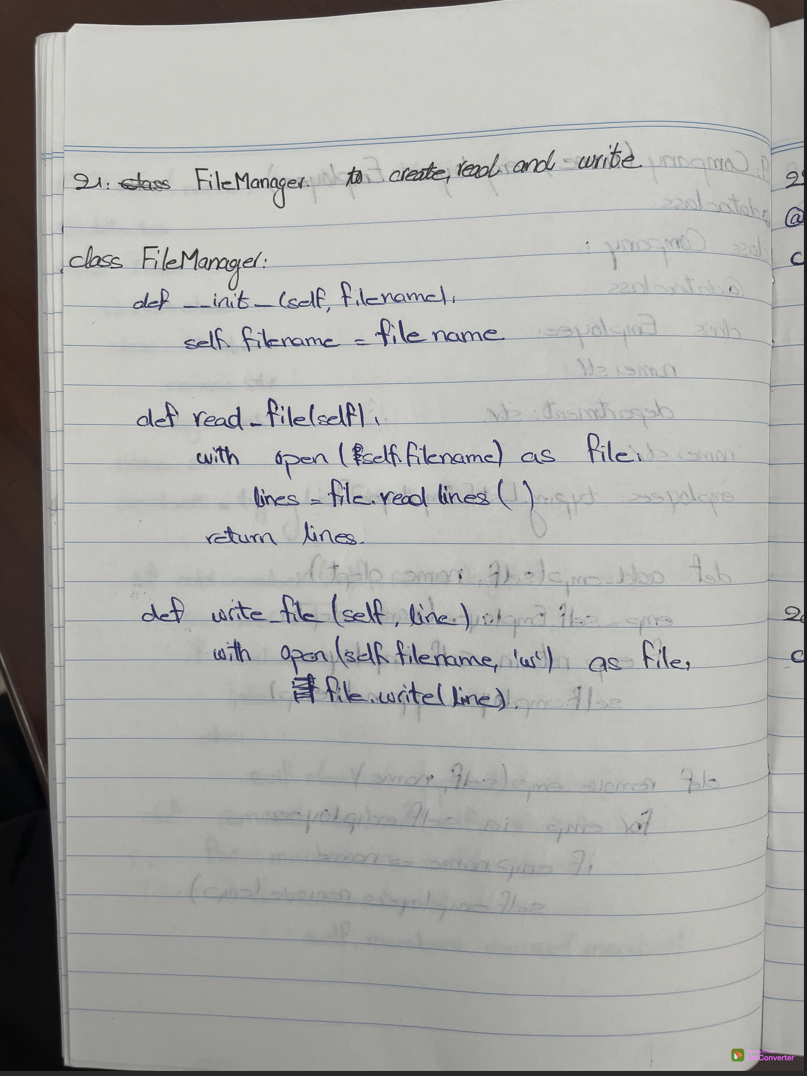 21. class FileManager. to create, read and write
class FileManager:
def __init_(self, filename).
self.filename = file name
def read_file(self).
with open (self.filename) as file.
lines = file.read lines ()
return lines.
def write_file (self, line.)
with open(self.filename, 'w') as file,
file.write(line).